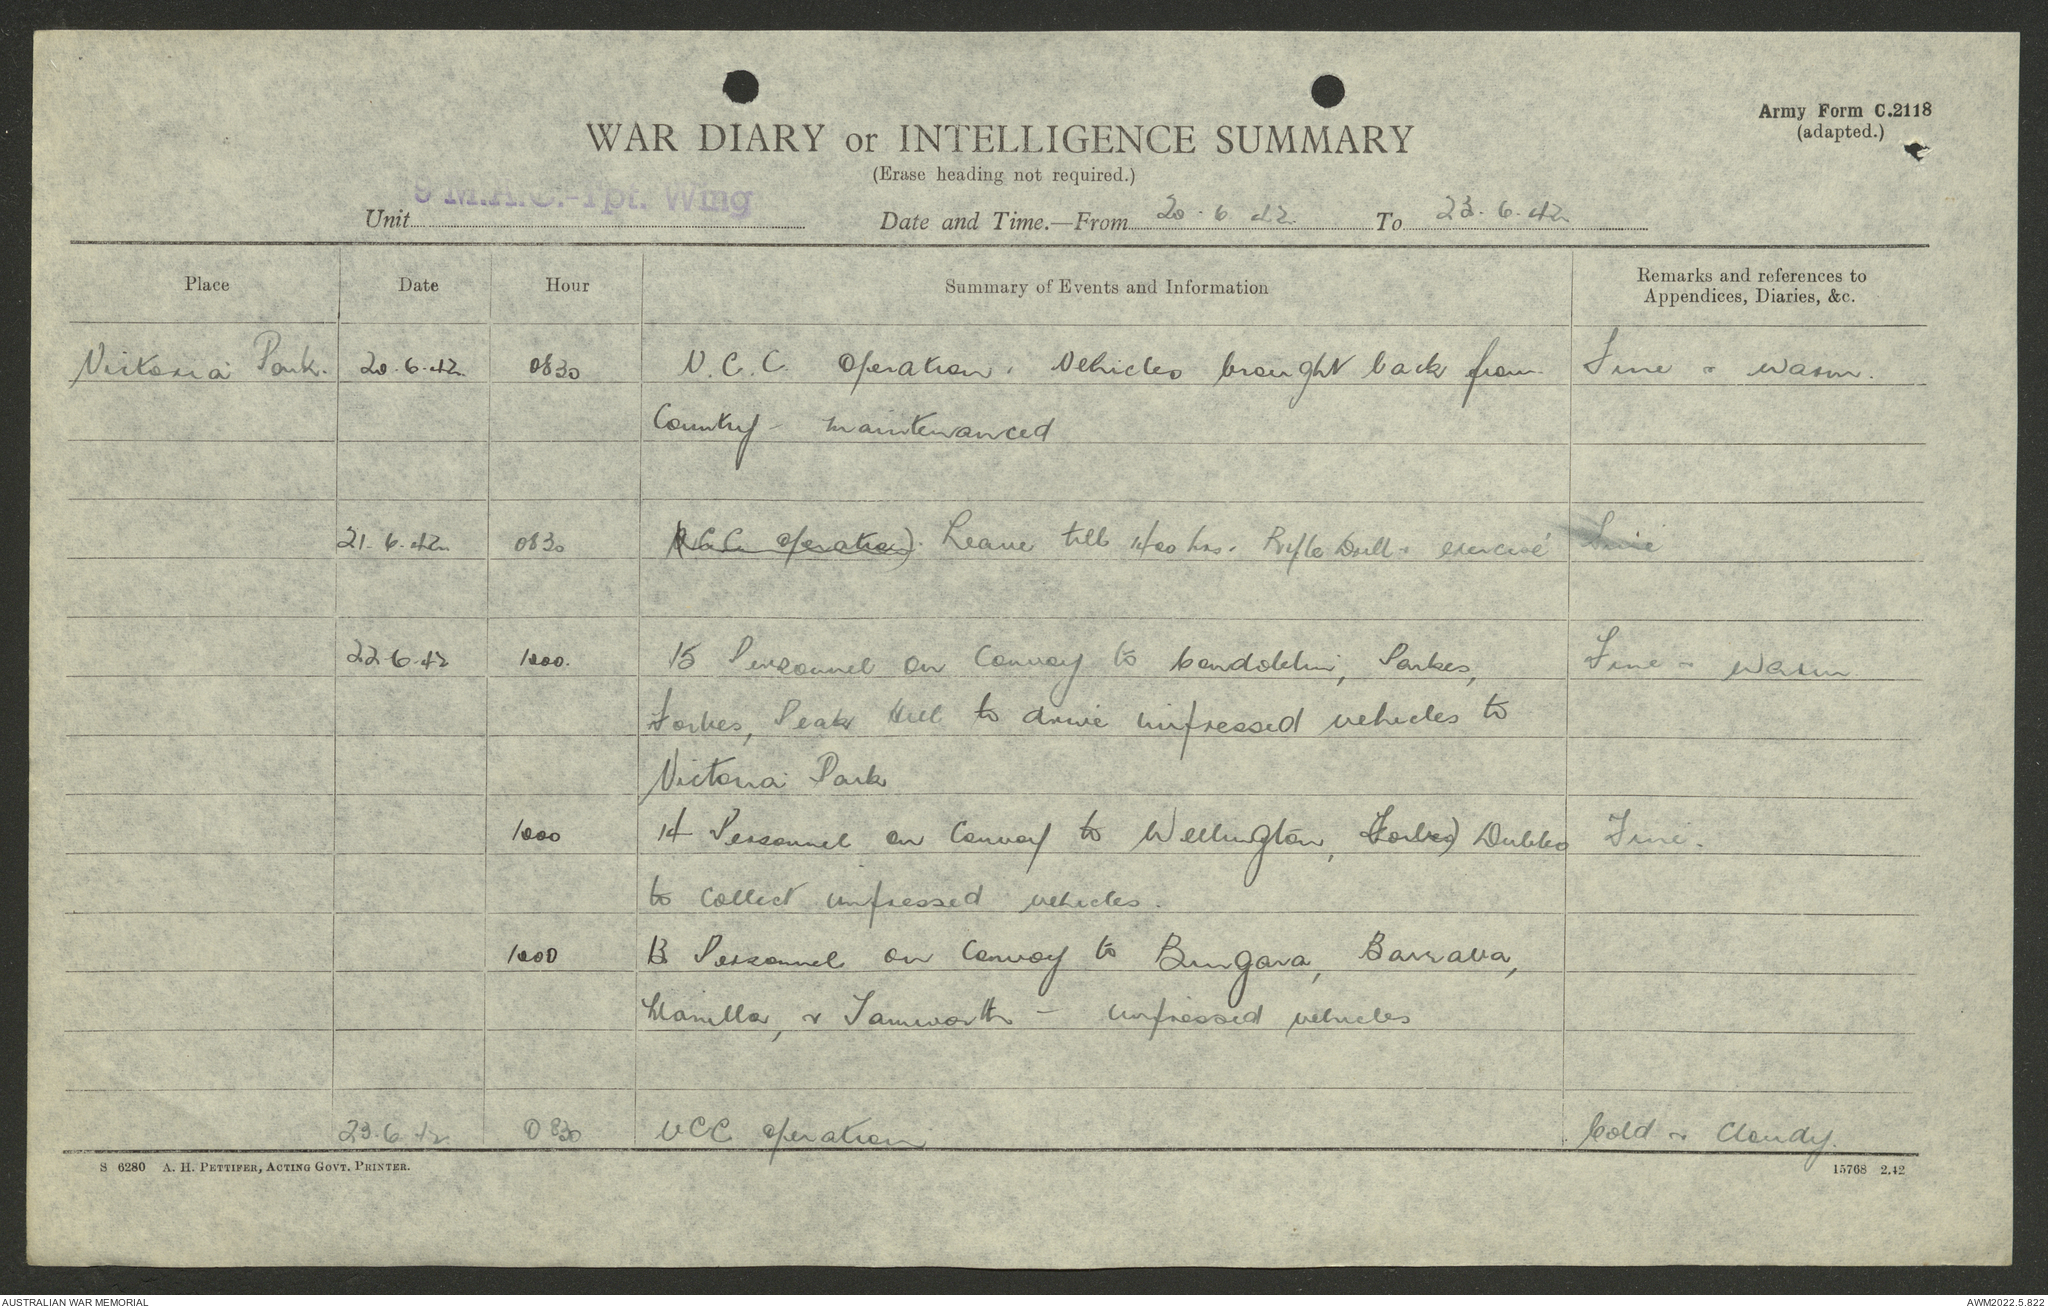 Army Form C.2118
(adapted.)
WAR DIARY or INTELLIGENCE SUMMARY
(Erase heading not required.)
Unit 9 M.A.C.-Tpt. Wing Date and Time.—From 20.6.42 To 23.6.42
Place Date Hour Summary of Events and Information Remarks and references to
Appendices, Diaries, &c.
Victoria Park. 20.6.42 0830 V.C.C. operation. Vehicles brought back from Fine & warm.
Country - maintenanced
21.6.42 0830 V.C.C. operation). Leave till 1400 hrs. Rifle Drill & exercise Fine
22.6.42 1000. 15 Personnel on Convoy to Condoblin, Parkes, Fine & warm
Forbes, Peak Hill to drive impressed vehicles to
Victoria Park
1000 14 Personnel on Convoy to Wellington, Forbes) Dubbo Fine.
to collect impressed vehicles.
1000 13 Personnel on Convoy to Bingara, Barraba,
Manilla, & Tamworth - impressed vehicles
23.6.42 0830 VCC operation Cold & Cloudy.
S 6280 A. H. PETTIFER, ACTING GOVT. PRINTER. 15768 2.42
AUSTRALIAN WAR MEMORIAL AWM2022.5.822